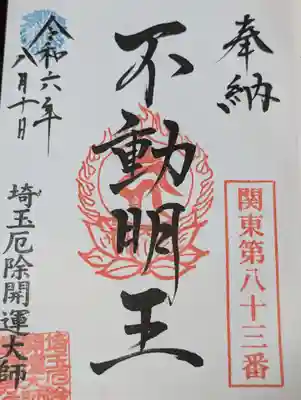 奉納
関東第八十三番
不動明王
令和六年
八月十日
埼玉厄除開運大師